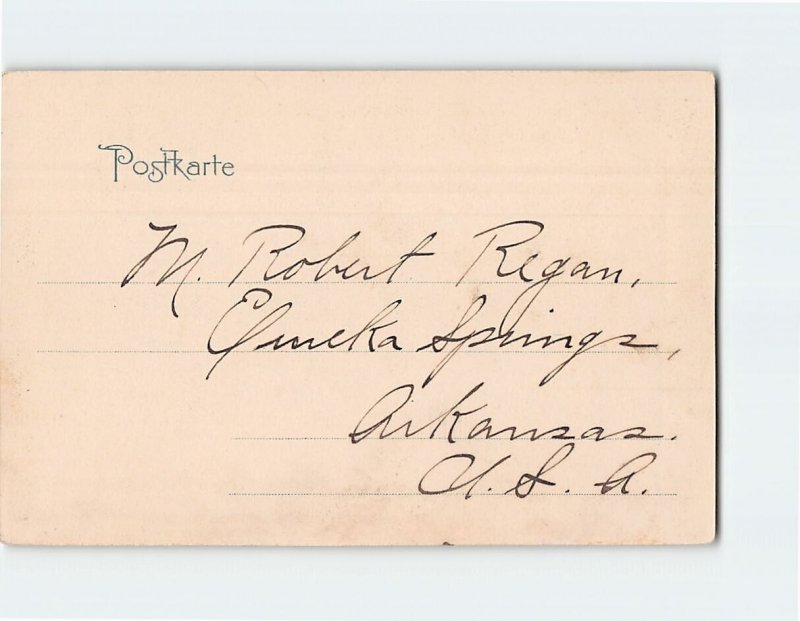 Postkarte
M. Robert Regan,
Eureka Springs,
Arkansas.
U. S. A.